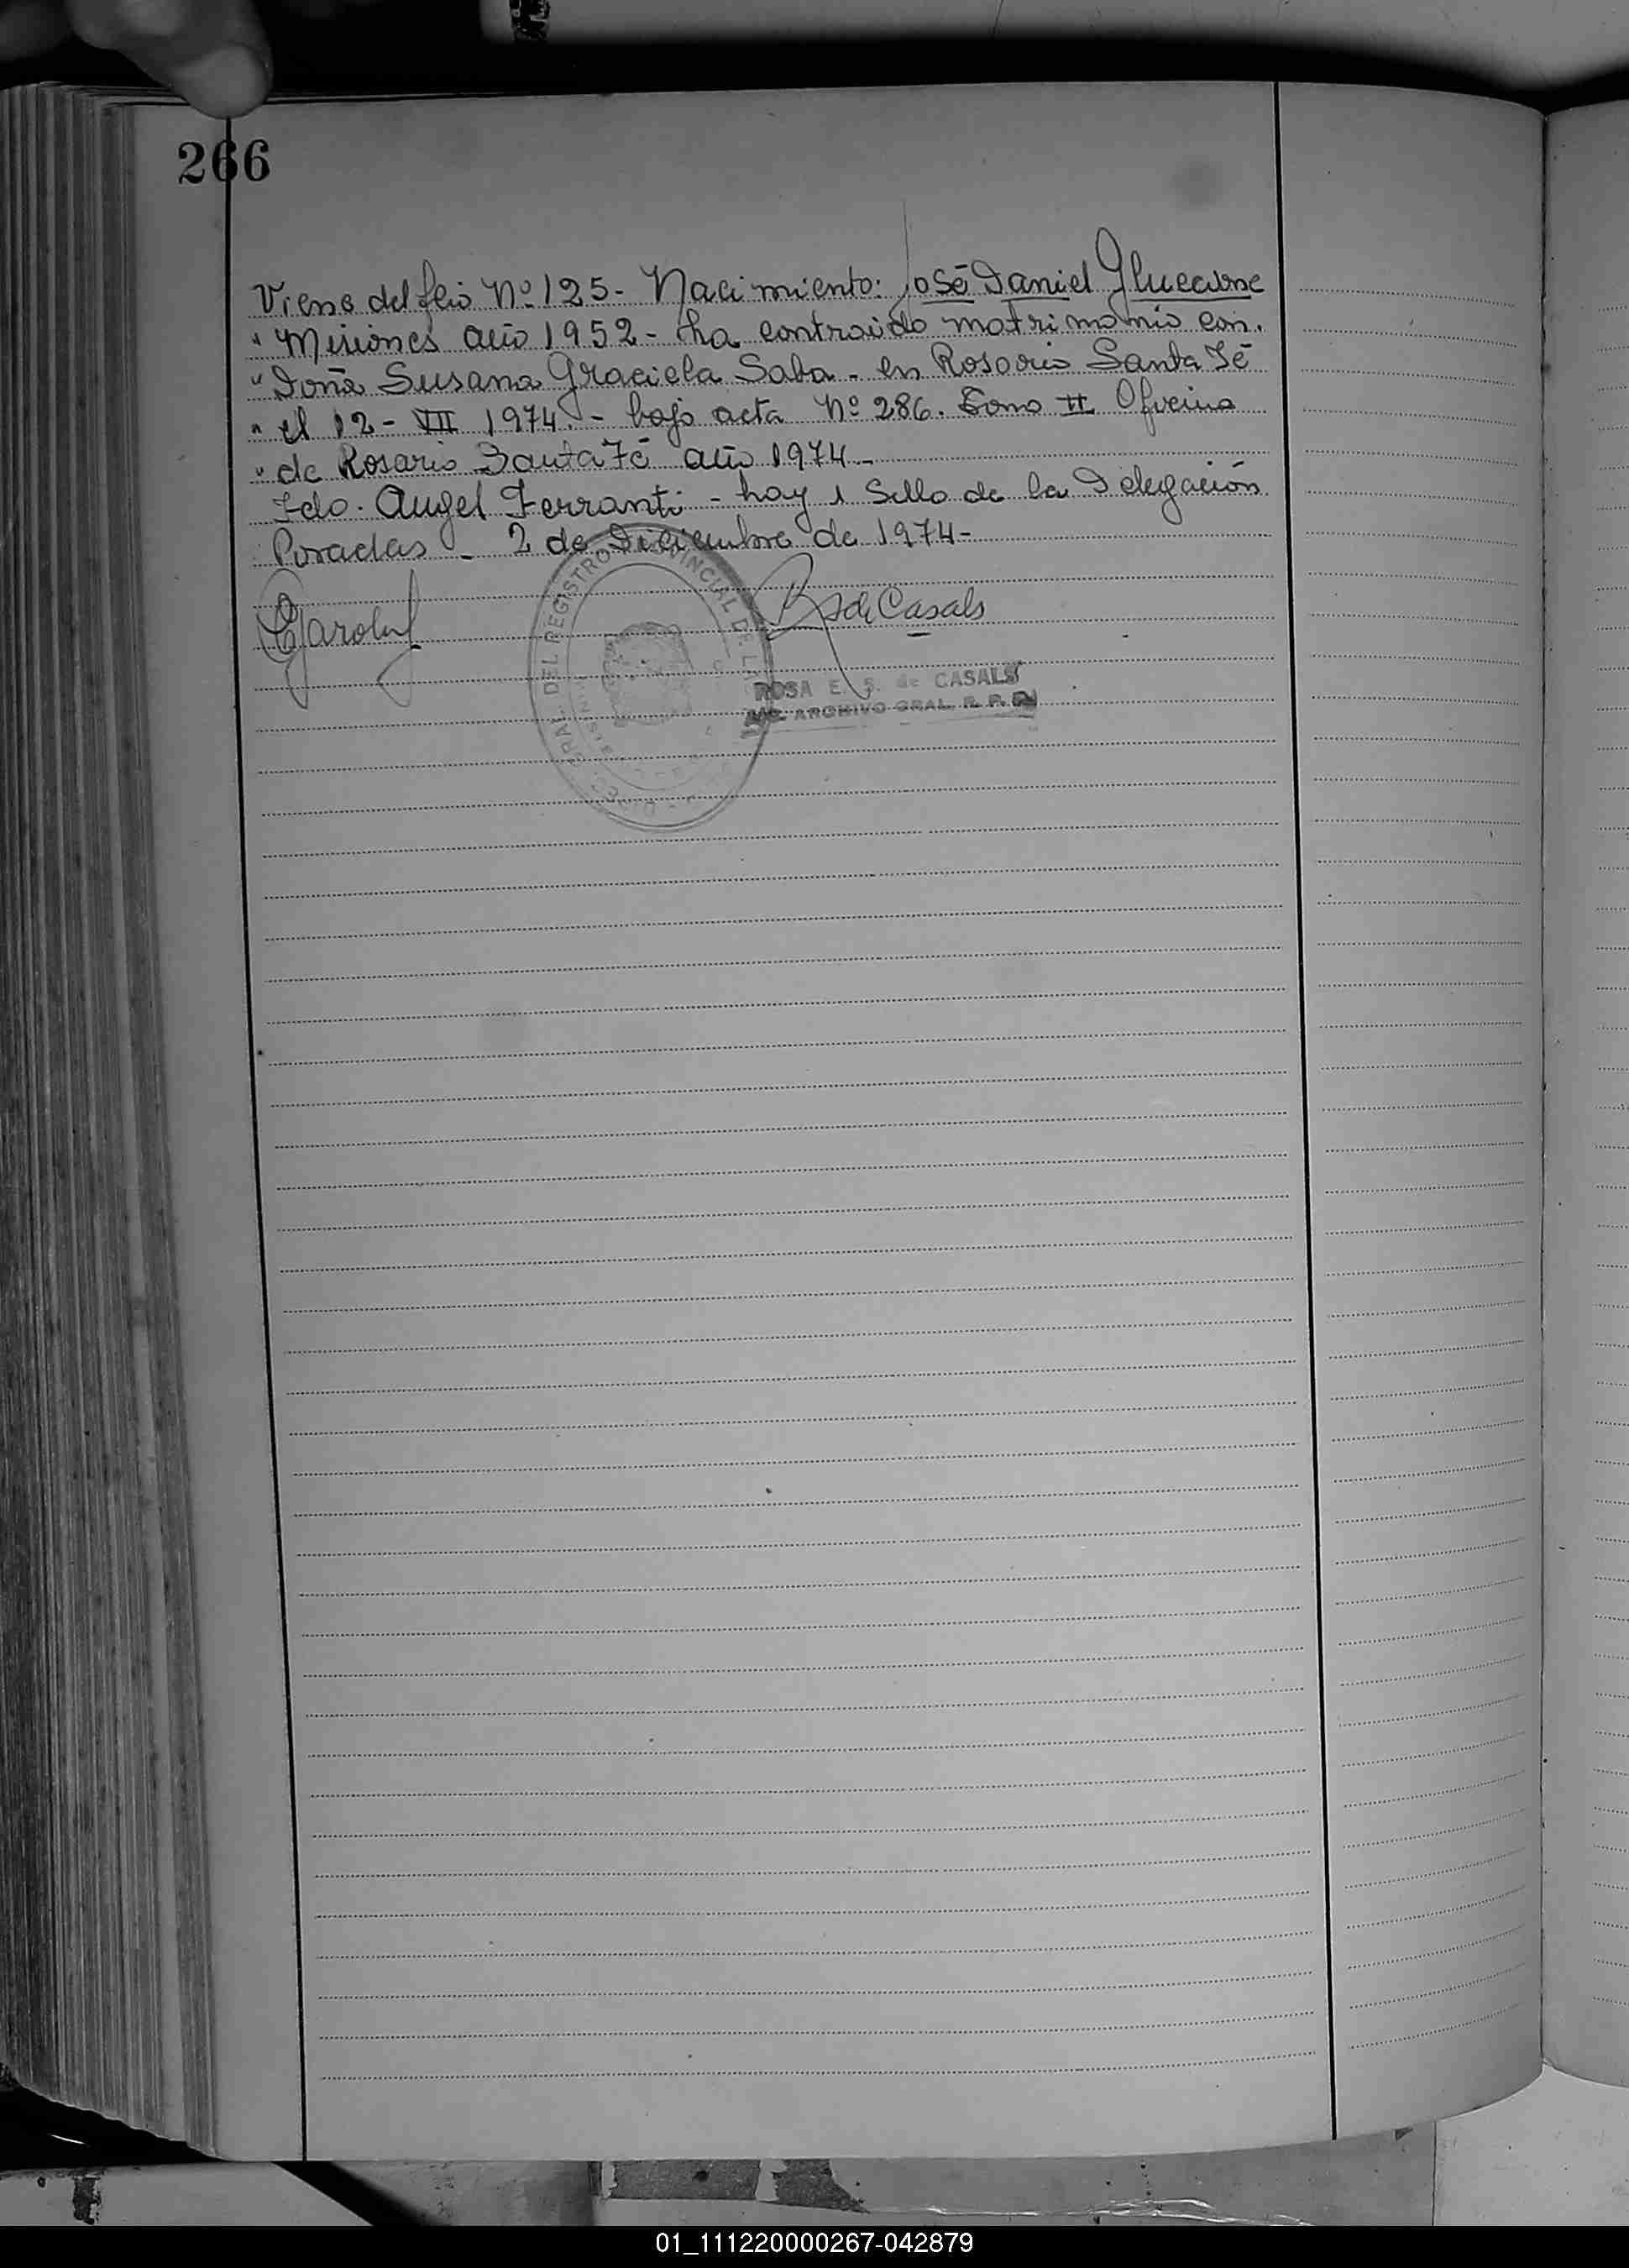 266
Viene del folio Nº 125 - Nacimiento: José Daniel
" Misiones año 1952 - ha contraido matrimonio con.
" Doña Susana Graciela Saba - en Rosario Santa Fé
" el 12 - VII 1974. - bajo acta Nº 286. Tomo II Oficina
" de Rosario Santa Fé año 1974 -
Fdo. Angel Ferranti - hay 1 Sello de la Delegación
Posadas - 2 de Diciembre de 1974 -
de Casals
DEL REGISTRO PROVINCIAL DE L
GRAL.
ROSA E. S. de CASALS
ARCHIVO GRAL. R. P. P.
01_111220000267-042879